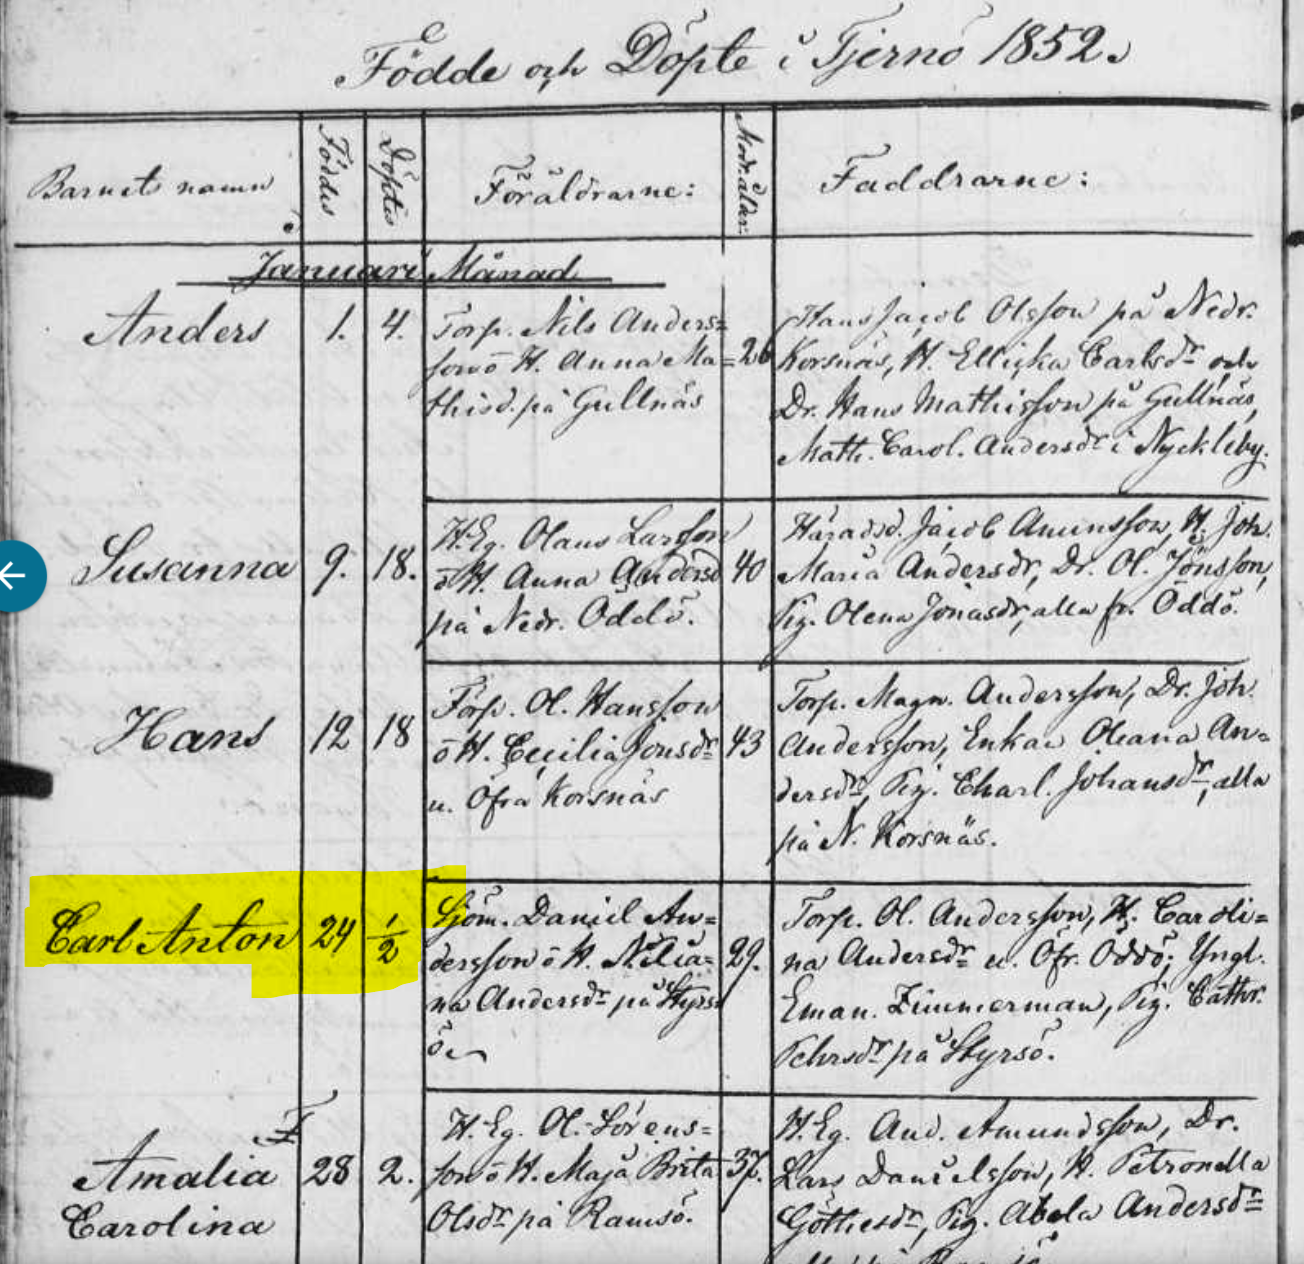 Födde och Döpte i Tjernö 1852.
Barnets namn
Föddes
Döptes
Föräldrarne:
Modr. ålder.
Faddrarne:
Januari Månad
Anders 1. 4. Torp. Nils Anders= 26 Hans Jacob Olsson på Nedr.
son o H. Anna Ma= Korsnäs, H. Carlsdr och
thisd. på Gullnäs Dr. Hans Mathisson på Gullnäs,
Math. Carol. Andersdr i Nyckleby.
Susanna 9. 18. H.Eg. Olaus Larsson 40 Häradsd. Jacob Amunsson, H. Joh.
o H. Anna Andersd Maria Andersdr, Dr. Ol. Jönsson,
på Nedr. Öddö. Pig. Olena Jonasdr, alla fr. Öddö.
Hans 12 18 Torp. Ol. Hansson 43 Torp. Magn. Andersson, Dr. Joh.
o H. Cecilia Jonsdr Andersson, Enkan Oleana An=
u. Öfra Korsnäs dersdr, Pig. Charl. Johansdr, alla
på N. Korsnäs.
Carl Anton 24 1/2 Sjöm. Daniel An= 29. Torp. Ol. Andersson, H. Caroli=
dersson o H. na Andersdr u. Öfr. Öddö; Yngl.
na Andersdr på Styrs Eman. Zimmerman, Pig. Cathr.
ö Pehrsdr på Styrsö.
F
Amalia 28 2. H.Eg. Ol. Sörens= 37. H.Eg. And. Amundsson, Dr.
Carolina son o H. Maja Brita Lars Danielsson, H. Petronella
Olsdr på Ramsö. Pig. Abela Andersdr